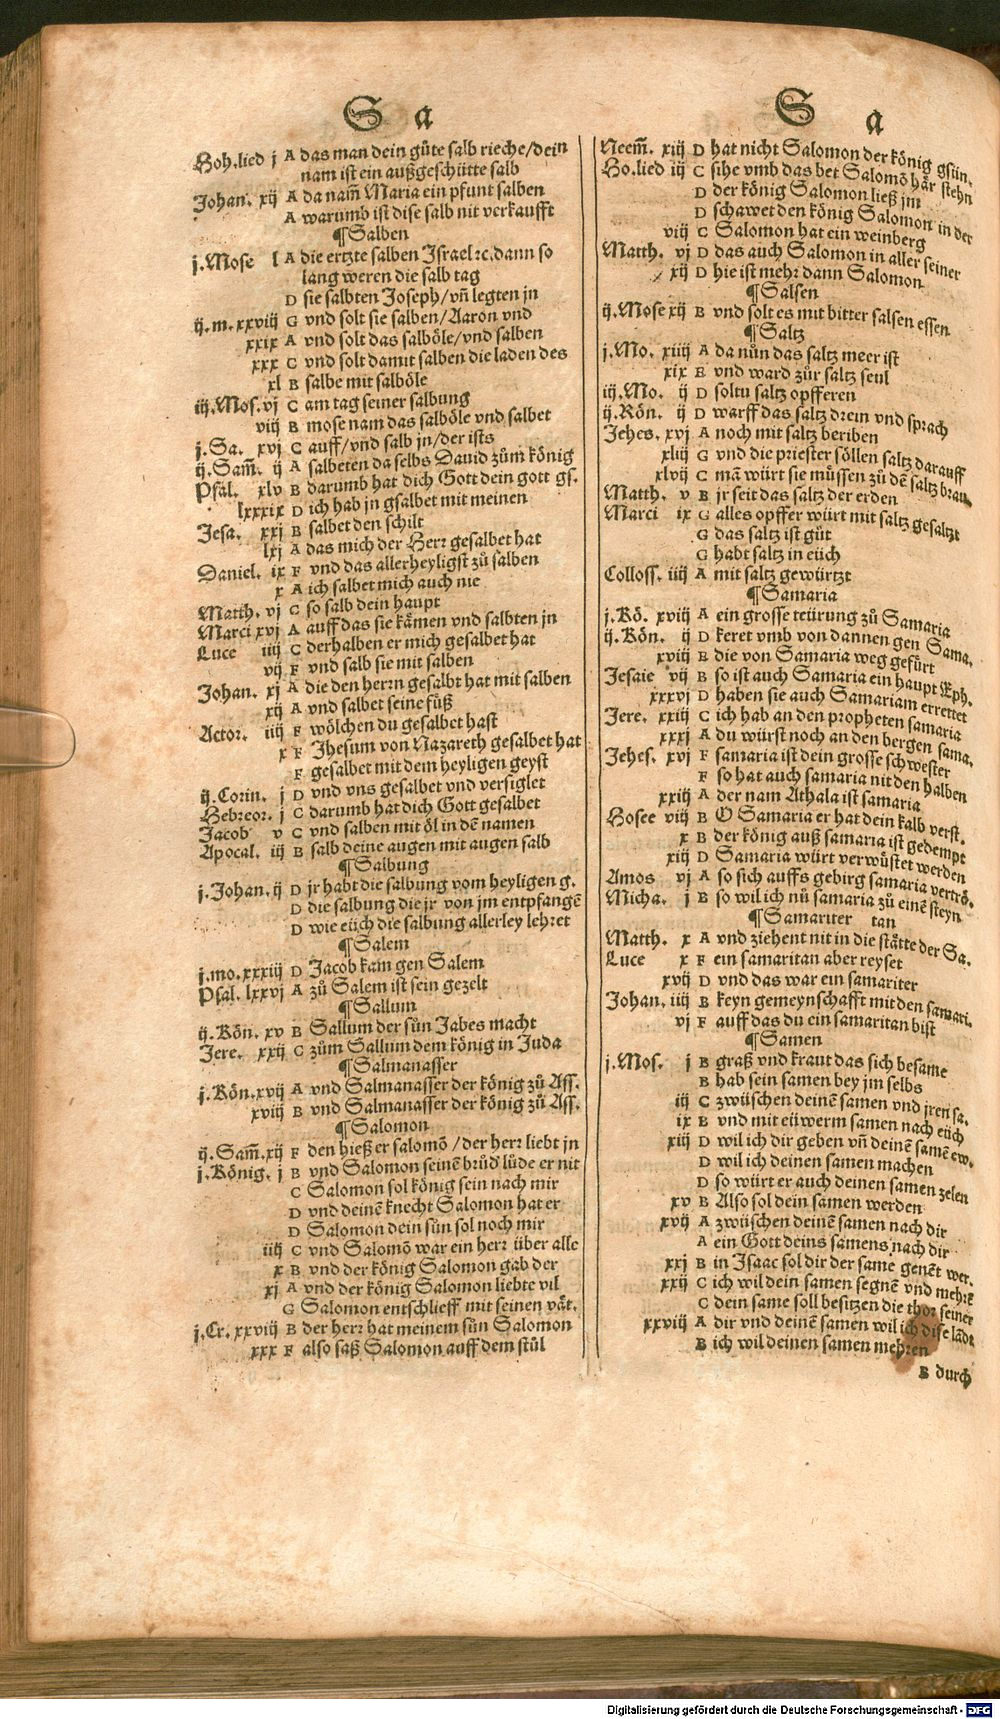 S a
Hoh.lied j A das man dein güte salb rieche/dein
nam ist ein außgeschütte salb
Johan. xij A da nam̃ Maria ein pfunt salben
A warumb ist dise salb nit verkaufft
¶Salben
j.Mose l A die ertzte salben Israel ꝛc.dann so
lang weren die salb tag
D sie salbten Joseph/vn̄ legten jn
ij.m.xxviij G vnd solt sie salben/Aaron vnd
xxix A vnd solt das salböle/vnd salben
xxx C vnd solt damit salben die laden des
xl B salbe mit salböle
iij.Mos.vj C am tag seiner salbung
viij B mose nam das salböle vnd salbet
j.Sa. xvj C auff/vnd salb jn/der ists
ij.Sam̃. ij A salbeten da selbs David zům könig
Psal. xlv B darumb hat dich Gott dein gott gs.
lxxxix D ich hab jn gsalbet mit meinen
Jesa. xxj B salbet den schilt
lxj A das mich der Herr gesalbet hat
Daniel. ix F vnd das allerheyligst zů salben
x A ich salbet mich auch nie
Matth. vj C so salb dein haupt
Marci xvj A auff das sie kämen vnd salbten jn
Luce iiij C derhalben er mich gesalbet hat
vij F vnd salb sie mit salben
Johan. xj A die den herrn gesalbt hat mit salben
xij A vnd salbet seine füß
Actor. iiij F wölchen du gesalbet hast
x F Jhesum von Nazareth gesalbet hat
F gesalbet mit dem heyligen geyst
ij.Corin. j D vnd vns gesalbet vnd versiglet
Hebreor. j C darumb hat dich Gott gesalbet
Jacob v C vnd salben mit öl in dē namen
Apocal. iij B salb deine augen mit augen salb
¶Salbung
j.Johan. ij D jr habt die salbung vom heyligen g.
D die salbung die jr von jm entpfangē
D wie eüch die salbung allerley lehret
¶Salem
j.mo.xxxiij D Jacob kam gen Salem
Psal. lxxvj A zů Salem ist sein gezelt
¶Sallum
ij.Kön. xv B Sallum der sůn Jabes macht
Jere. xxij C zům Sallum dem könig in Juda
¶Salmanasser
j.Kön.xvij A vnd Salmanasser der könig zů Ass.
xviij B vnd Salmanasser der könig zů Ass.
¶Salomon
ij.Sam̃.xij F den hieß er salomō/der herr liebt jn
j.König. j B vnd Salomon seinē brůd' lůde er nit
C Salomon sol könig sein nach mir
D vnd deinē knecht Salomon hat er
D Salomon dein sůn sol noch mir
iiij C vnd Salomō war ein herr über alle
x B vnd der könig Salomon gab der
xj A vnd der könig Salomon liebte vil
G Salomon entschlieff mit seinen vät.
j.Cr. xxviij B der herr hat meinem sůn Salomon
xxx F also saß Salomon auff dem stůl
S a
Neem̃. xiij D hat nicht Salomon der könig gsün.
Ho.lied iij C sihe vmb das bet Salomō här stehn
D der könig Salomon ließ jm
D schawet den könig Salomon in der
viij C Salomon hat ein weinberg
Matth. vj D das auch Salomon in aller seiner
xij D hie ist mehr dann Salomon
¶Salsen
ij.Mose xij B vnd solt es mit bitter salsen essen
¶Saltz
j.Mo. xiiij A da nůn das saltz meer ist
xix E vnd ward zůr saltz seul
iij.Mo. ij D soltu saltz opfferen
ij.Kön. ij D warff das saltz drein vnd sprach
Jehes. xvj A noch mit saltz beriben
xliij G vnd die priester söllen saltz darauff
xlvij C mā würt sie müssen zů dē saltz brau.
Matth. v B jr seit das saltz der erden
Marci ix G alles opffer würt mit saltz gesaltzt
G das saltz ist gůt
G habt saltz in eüch
Colloss. iiij A mit saltz gewürtzt
¶Samaria
j.Kö. xviij A ein grosse teürung zů Samaria
ij.Kön. ij D keret vmb von dannen gen Sama.
xviij B die von Samaria weg gefürt
Jesaie vij B so ist auch Samaria ein haupt Eph.
xxxvj D haben sie auch Samariam errettet
Jere. xxiij C ich hab an den propheten samaria
xxxj A du würst noch an den bergen sama.
Jehes. xvj F samaria ist dein grosse schwester
F so hat auch samaria nit den halben
xxiij A der nam Athala ist samaria
Hosee viij B O Samaria er hat dein kalb verst.
x B der könig auß samaria ist gedempt
xiij D Samaria würt verwüstet werden
Amos vj A so sich auffs gebirg samaria vertrö.
Micha. j B so wil ich nů samaria zů einē steyn
¶Samariter tan
Matth. x A vnd ziehent nit in die stätte der Sa.
Luce x F ein samaritan aber reyset
xvij D vnd das war ein samariter
Johan. iiij B keyn gemeynschafft mit den samari.
vj F auff das du ein samaritan bist
¶Samen
j.Mos. j B graß vnd kraut das sich besame
B hab sein samen bey jm selbs
iij C zwüschen deinē samen vnd jren sa.
ix B vnd mit eüwerm samen nach eüch
xiij D wil ich dir geben vn̄ deinē samē ew.
D wil ich deinen samen machen
D so würt er auch deinen samen zelen
xv B Also sol dein samen werden
xvij A zwüschen deinē samen nach dir
A ein Gott deins samens nach dir
xxj B in Isaac sol dir der same genēt wer.
xxij C ich wil dein samen segnē vnd mehrē
C dein same soll besitzen die thor seiner
xxviij A dir vnd deinē samen wil ich dise lādt
B ich wil deinen samen mehren
B durch
Digitalisierung gefördert durch die Deutsche Forschungsgemeinschaft - DFG